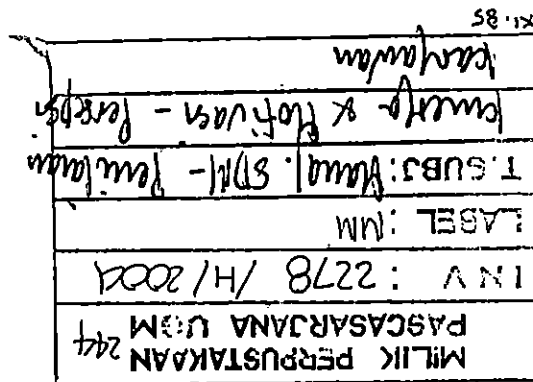 MILIK PERPUSTAKAAN
PASCASARJANA UGM 244
INV : 2278 /H/2004
LABEL : MM
T.SUBJ: Manaj. SDM - Penilaian
kinerja & Motivasi - Persepsi
karyawan